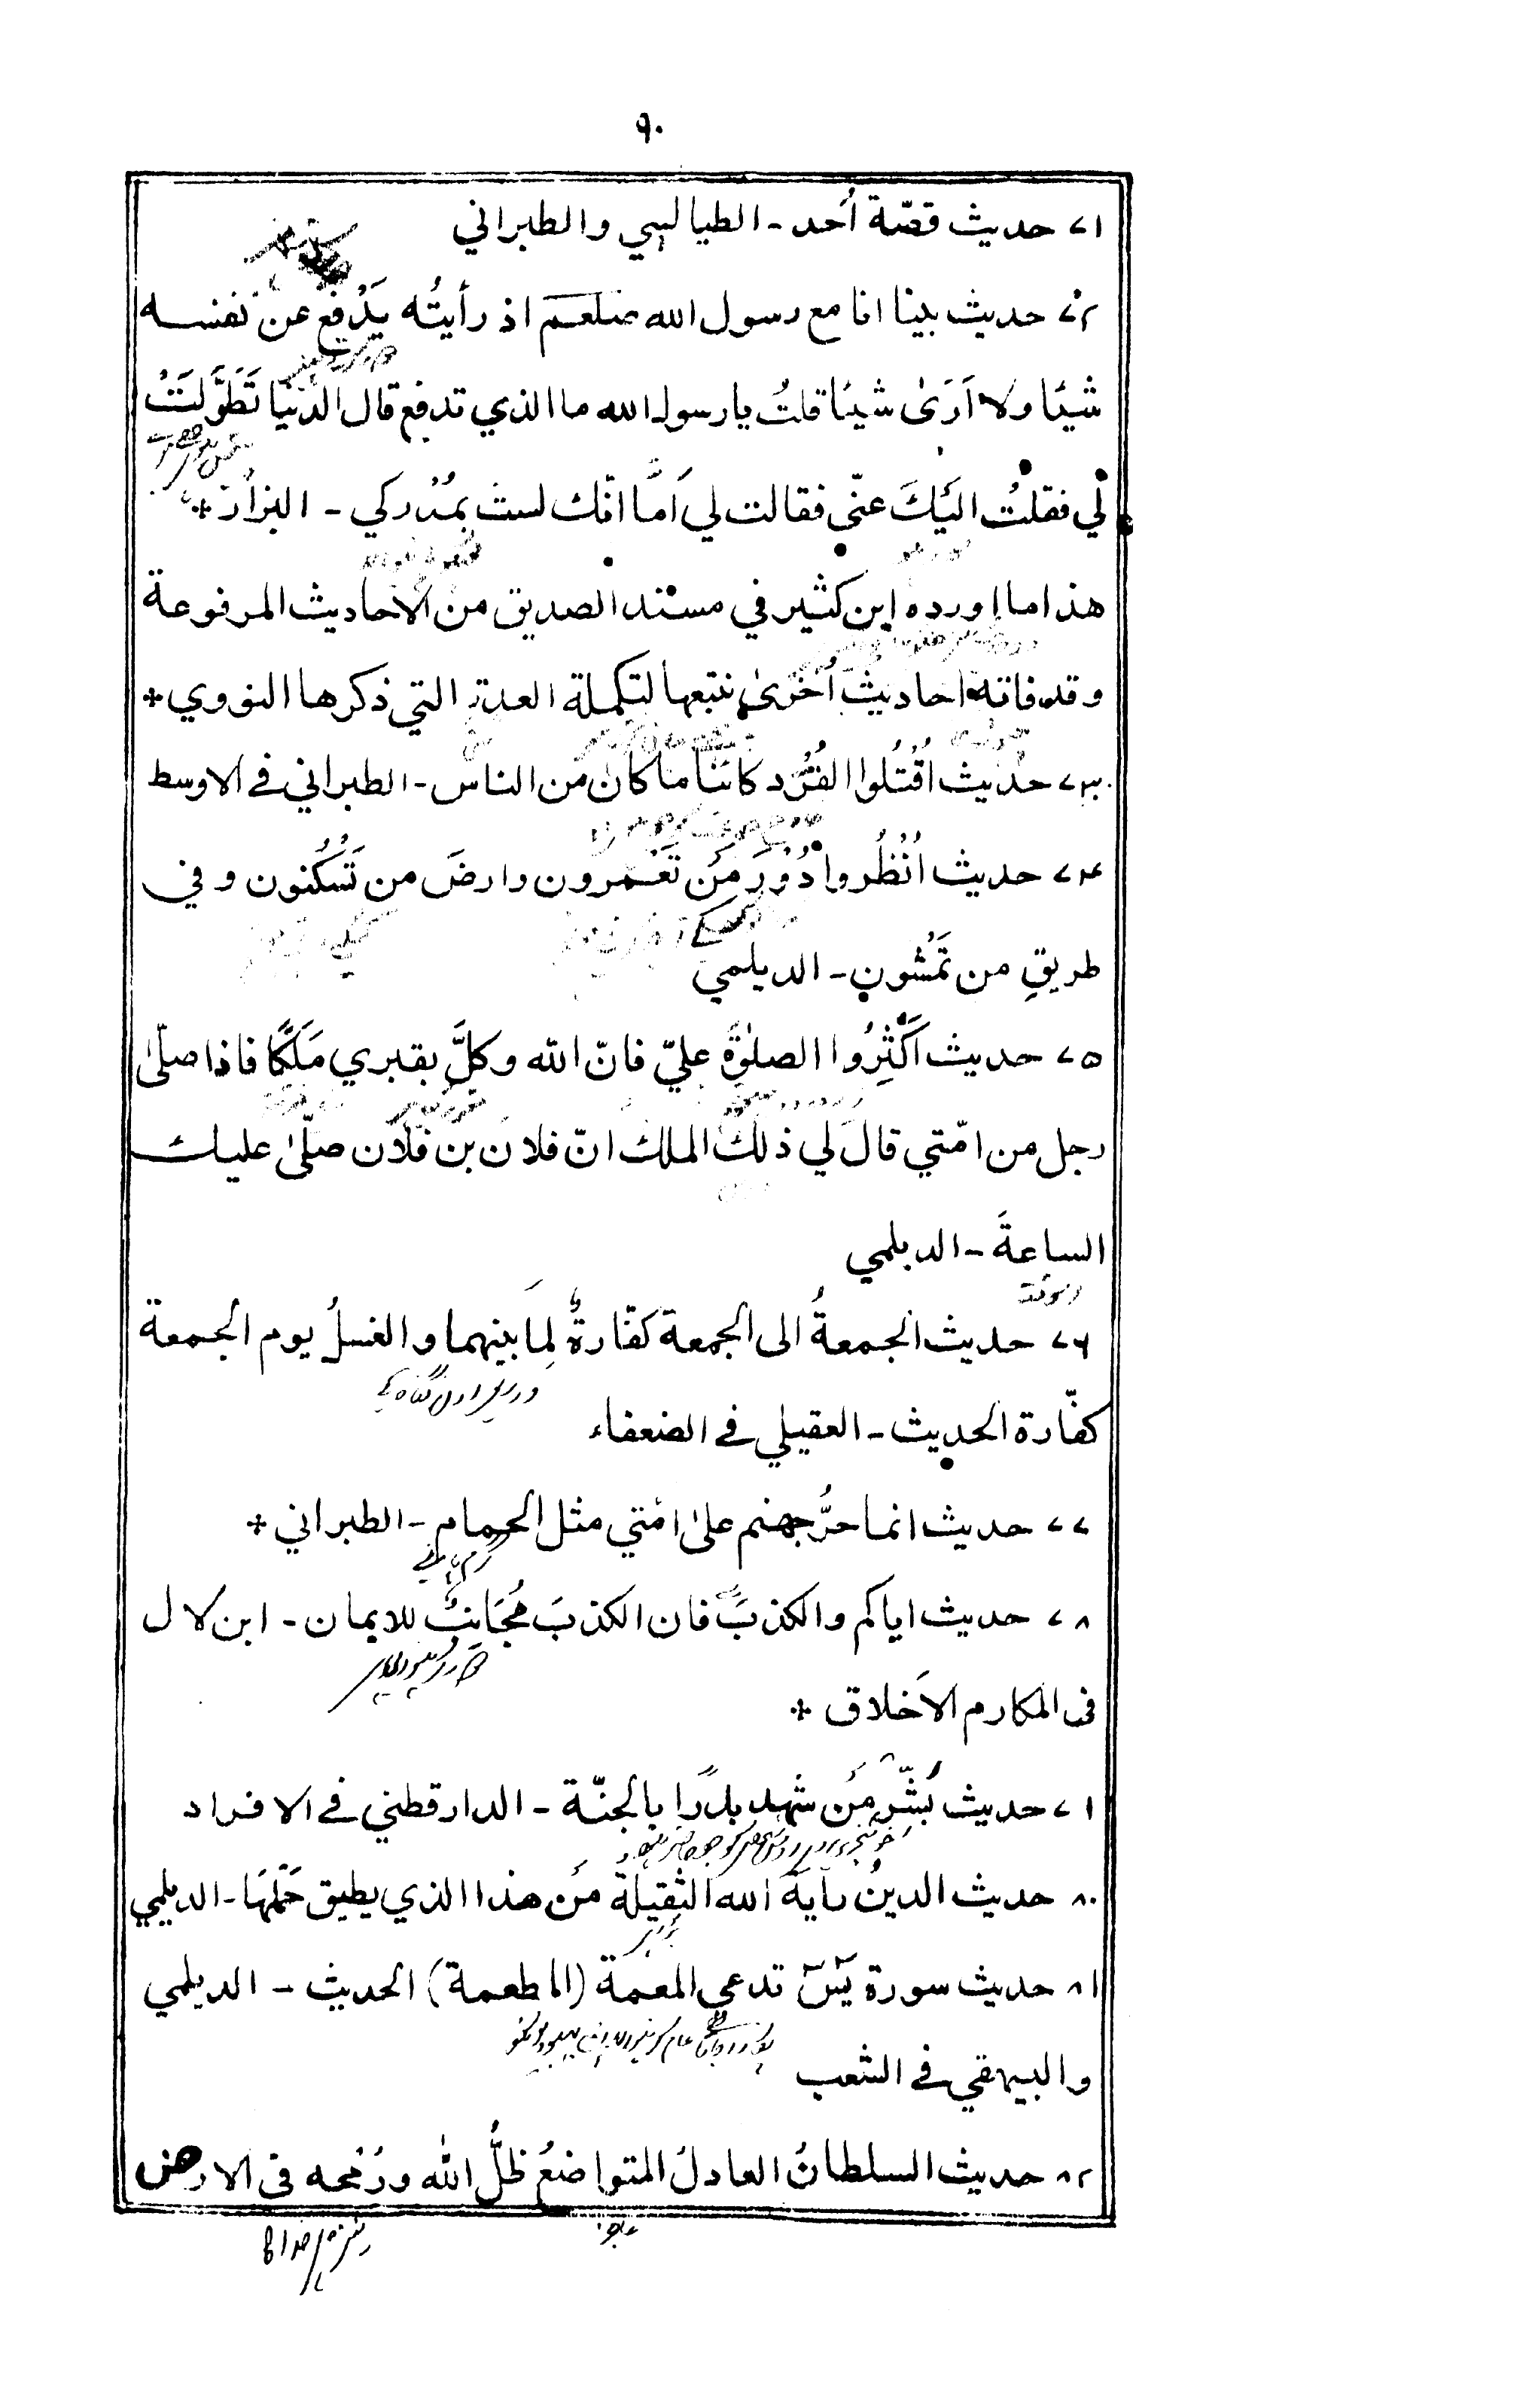 ٩٠
٧١ حديث قصّة أُحد ـ الطيالسي والطبراني
٧٢ حديث بينا انا مع رسول الله صلعم اذ رأيتُه يَدْفع عن نفسه
شيئا ولا اَرَىٰ شيئا قلتُ يا رسول الله ما الذي تدفع قال الدُّنْيا تَطَوَّلَتْ
لي فقلتُ اليَكَ عنّي فقالت لي اَمَّا انّك لستَ بمُدْركي ـ البزار *
هذا ما اورده ابن كثير في مسند الصديق من الاحاديث المرفوعة
وقد فاته احاديث اُخرىٰ نتبعها لتكملة العدة التي ذكرها النووي *
٧٣ حديث اُقْتُلوا القُرْد كائنا ما كان من الناس ـ الطبراني في الاوسط
٧٤ حديث اُنْظُروا دُوْرَ مَن تَعْمُرون وارضَ من تَسْكُنون وفي
طريقِ من تَمْشون ـ الديلمي
٧٥ حديث اَكْثِرُوا الصلوٰةَ عليّ فانّ الله وكلَّ بقبري مَلَكًا فاذا صلّىٰ
رجل من امّتي قال لي ذلك الملك انّ فلان بن فلان صلّىٰ عليك
الساعةَ ـ الديلمي
٧٦ حديث الجمعةُ الى الجمعة كفّارةٌ لِمَا بينهما والغسلُ يوم الجمعة
كفّارة الحديث ـ العقيلي في الضعفاء
٧٧ حديث انما حرُّ جهنم علىٰ امّتي مثل الحمام ـ الطبراني *
٧٨ حديث اياكم والكذبَ فان الكذبَ مُجَانِبٌ للايمان ـ ابن لال
فى المكارم الاَخلاق *
٧١ حديث بَشِّرْ مَن شهد بدرًا بالجنّة ـ الدارقطني في الافراد
٨٠ حديث الدينُ راية الله الثقيلة مَن هذا الذي يطيق حَمْلَهَا ـ الديلمي
٨١ حديث سورة يٰسٓ تدعى المعمة (المطعمة) الحديث ـ الديلمي
والبيهقي في الشعب
٨٢ حديث السلطانُ العادلُ المتواضعُ ظلُّ الله ورُمْحه فى الارض